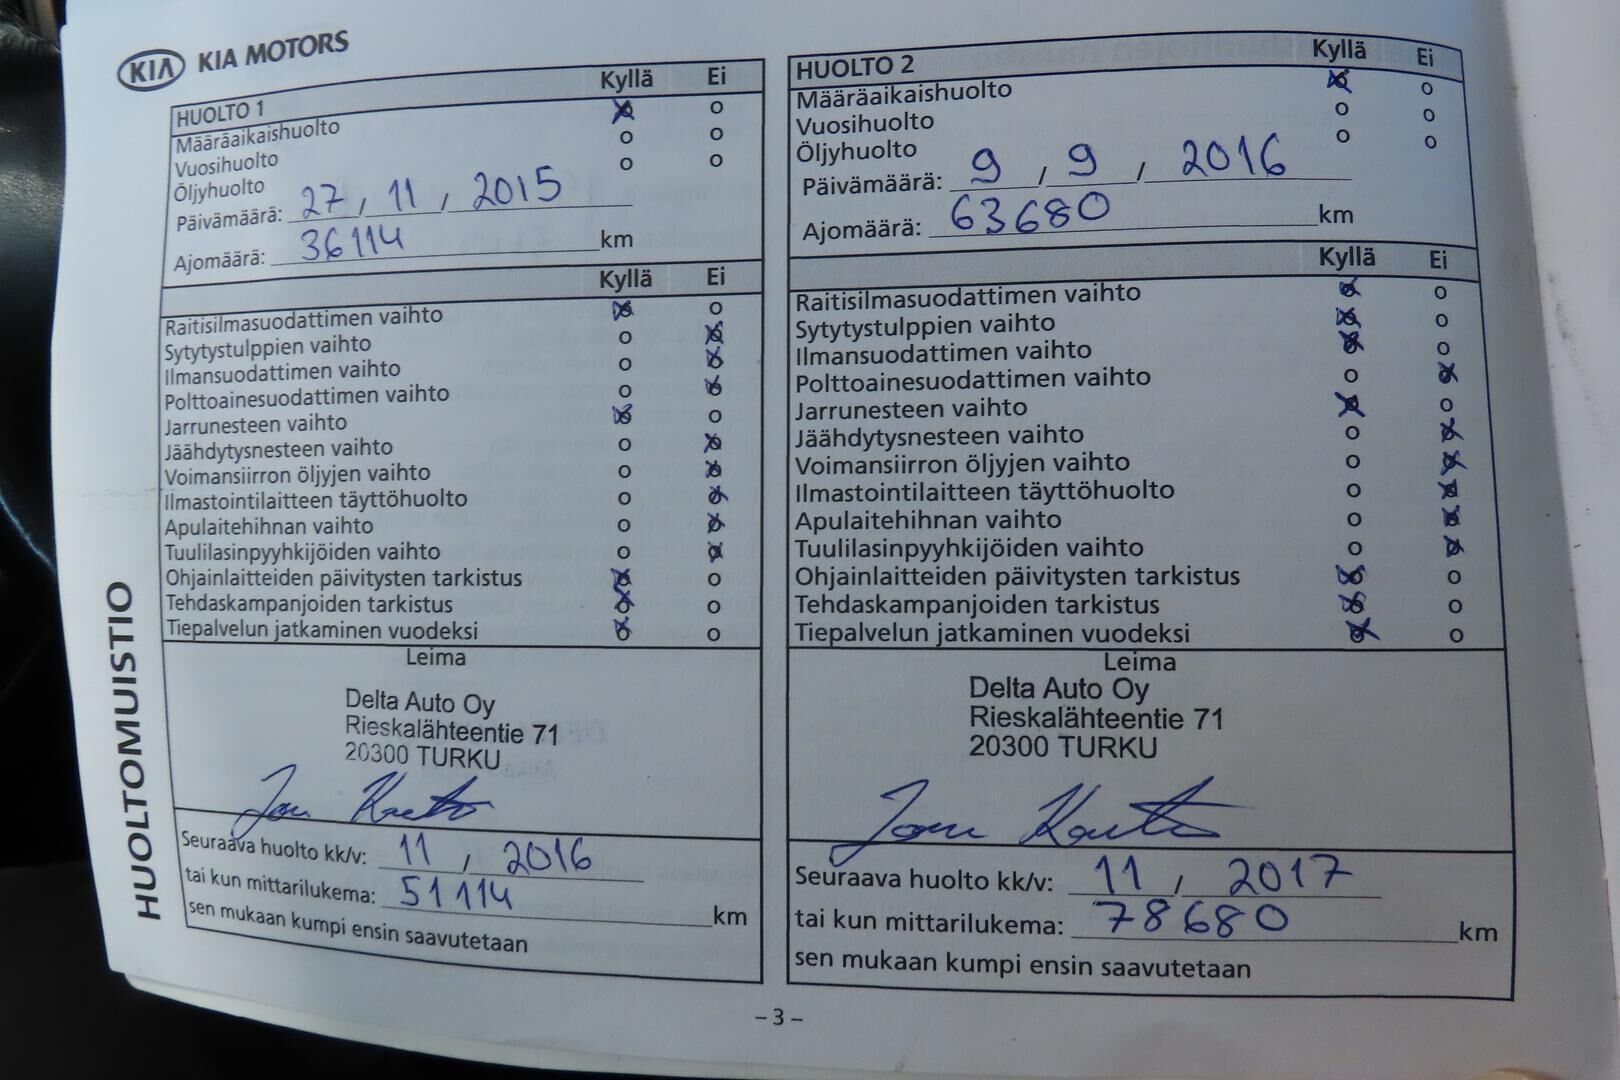 KIA KIA MOTORS
HUOLTOMUISTIO
HUOLTO 1 Kyllä Ei
Määräaikaishuolto
Vuosihuolto
Öljyhuolto
Päivämäärä: 27 / 11 / 2015
Ajomäärä: 36114 km
Kyllä Ei
Raitisilmasuodattimen vaihto
Sytytystulppien vaihto
Ilmansuodattimen vaihto
Polttoainesuodattimen vaihto
Jarrunesteen vaihto
Jäähdytysnesteen vaihto
Voimansiirron öljyjen vaihto
Ilmastointilaitteen täyttöhuolto
Apulaitehihnan vaihto
Tuulilasinpyyhkijöiden vaihto
Ohjainlaitteiden päivitysten tarkistus
Tehdaskampanjoiden tarkistus
Tiepalvelun jatkaminen vuodeksi
Leima
Delta Auto Oy
Rieskalähteentie 71
20300 TURKU
Seuraava huolto kk/v: 11 / 2016
tai kun mittarilukema: 51114 km
sen mukaan kumpi ensin saavutetaan
HUOLTO 2 Kyllä Ei
Määräaikaishuolto
Vuosihuolto
Öljyhuolto
Päivämäärä: 9 / 9 / 2016
Ajomäärä: 63680 km
Kyllä Ei
Raitisilmasuodattimen vaihto
Sytytystulppien vaihto
Ilmansuodattimen vaihto
Polttoainesuodattimen vaihto
Jarrunesteen vaihto
Jäähdytysnesteen vaihto
Voimansiirron öljyjen vaihto
Ilmastointilaitteen täyttöhuolto
Apulaitehihnan vaihto
Tuulilasinpyyhkijöiden vaihto
Ohjainlaitteiden päivitysten tarkistus
Tehdaskampanjoiden tarkistus
Tiepalvelun jatkaminen vuodeksi
Leima
Delta Auto Oy
Rieskalähteentie 71
20300 TURKU
Seuraava huolto kk/v: 11 / 2017
tai kun mittarilukema: 78680 km
sen mukaan kumpi ensin saavutetaan
– 3 –